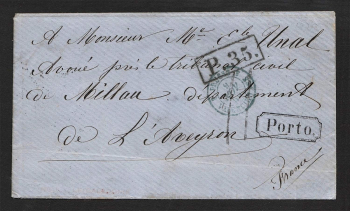 A Monsieur Mr. Unal
P. 35.
Avoué près le tribunal civil
de Millau département
Porto.
de L'Aveyron
France